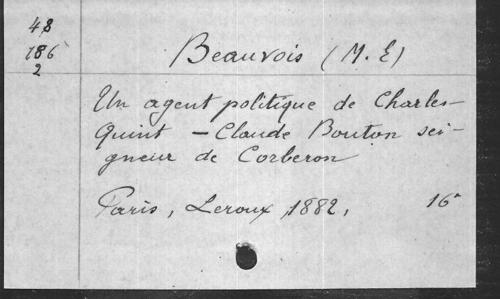 48
186
2
Beauvois (M. E)
Un agent politique de Charles-
Quint - Claude Bouton sei-
gneur de Corberon
Paris, Leroux, 1882, 16°